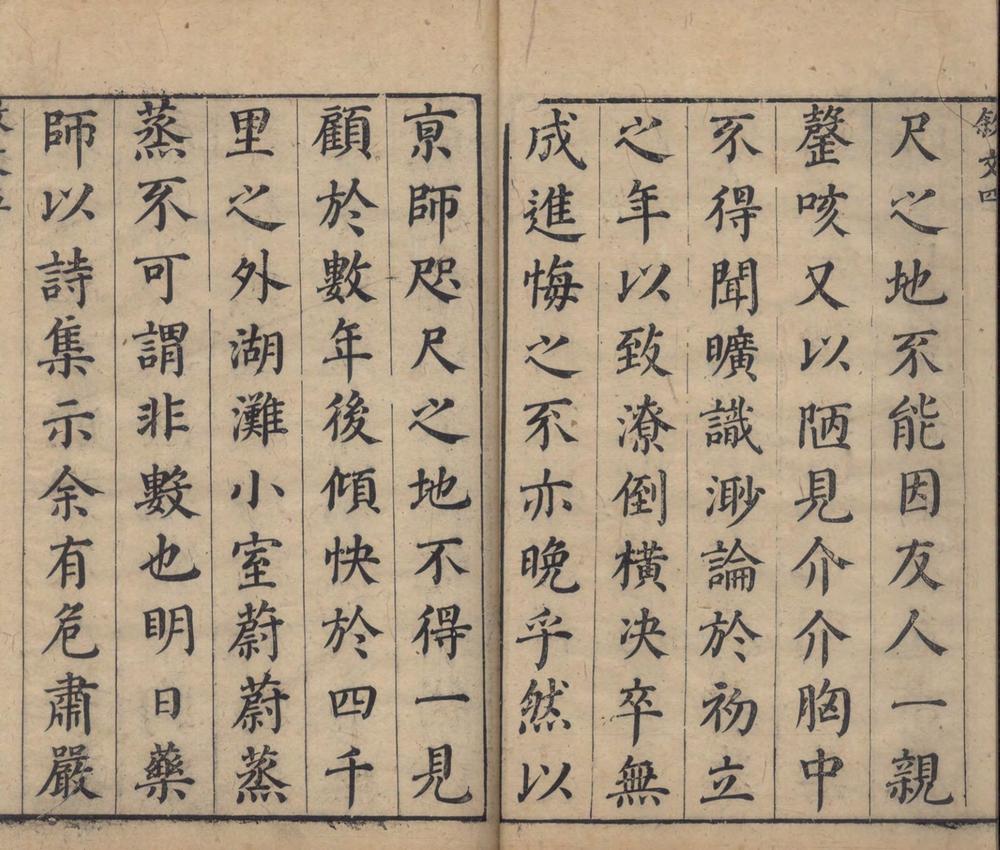 敘文四
尺之地不能因友人一親
聲咳又以陋見介介胸中
不得聞曠識渺論於初立
之年以致潦倒橫决卒無
成進悔之不亦晚乎然以
京師咫尺之地不得一見
顧於數年後傾快於四千
里之外湖灘小室蔚蔚蒸
蒸不可謂非數也明日藥
師以詩集示余有危肅嚴